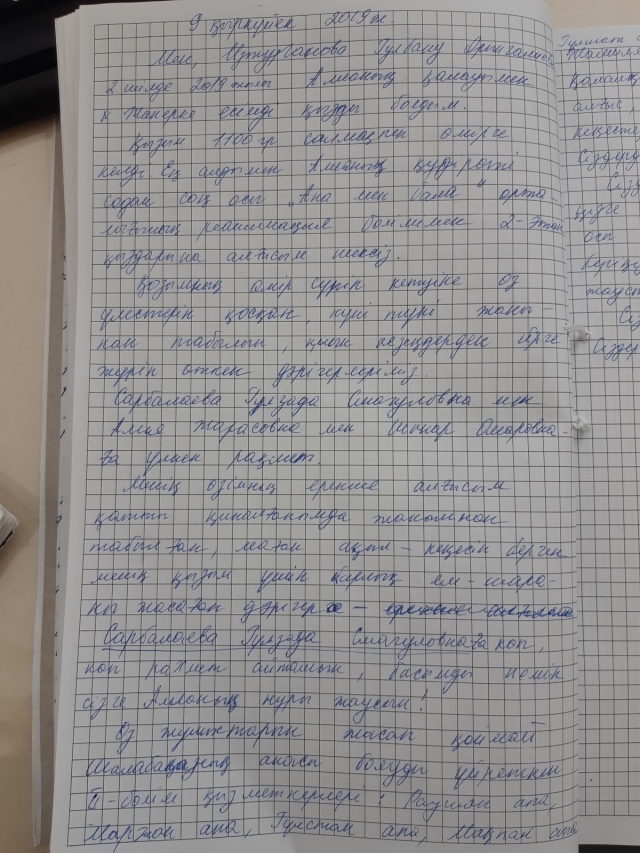 9 қыркүйек 2019ж.
Мен, Гулбану
2 шілде 2019 жылы Алланың қалауымен
есімді қызды болдым.
Қызым 1100 гр салмақпен өмірге
келді. Ең алдымен Алланың құдіреті
содан соң осы "Ана мен бала" орта-
лығының реанимация бөлімімен 2-этап
қыздарына алғысым шексіз.
Қызымның өмір сүріп кетуіне өз
үлестерін қосқан, күні түні жаны-
нан табылып, қиын кезеңдерден бірге
жүріп өткен дәрігерлеріміз.
Сарбалаева Гулзада Смагуловна мен
Тарасовна мен Шынар Омаровна-
ға үлкен рақмет.
Менің өзімнің ерекше алғысым
қатты қиналғанымда жанымнан
табылған, маған ақыл-кеңесін берген
менің қызым үшін барлық ем-шара-
ны жасаған дәрігер
Сарбалаева Гулзада Смагуловнаға көп,
көп рахмет айтамын, басымды иемін
сізге Алланың нұры жаусын!
Өз жұмыстарын жасап қоймай
анасы болуды үйреткен
II-бөлім қызметкерлері: Раушан апа,
Маржан апа, Гулстан апа, Мақпал апа